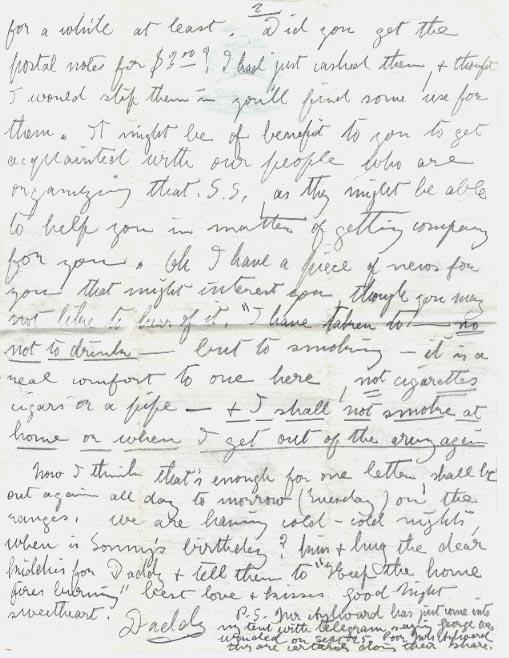 2
for a while at least. Did you get the
postal notes for $3.00? I had just cashed them, & thought
I would slip them in you'll find some use for
them. It might be of benefit to you to get
acquainted with our people who are
organizing that S.S., as they might be able
to help you in matter of getting company
for you. Oh I have a piece of news for
you that might interest you, though you may
not like to hear of it. "I have taken to — no
not to drink — but to smoking — it is a
real comfort to one here, not cigarettes
cigars or a pipe — & I shall not smoke at
home or when I get out of the army again
Now I think that's enough for one letter, shall be
out again all day to morrow (Tuesday) on the
ranges. We are having cold-cold nights,
when is Sonny's birthday? Kiss & hug the dear
kiddies for Daddy & tell them to "Keep the home
fires burning" best love & kisses good night
sweetheart. Daddy
P.S. Mr. Aylward has just come into
my tent with telegram saying George was
wounded on Sept 25. Poor Mrs Aylward
they are certainly doing their share.